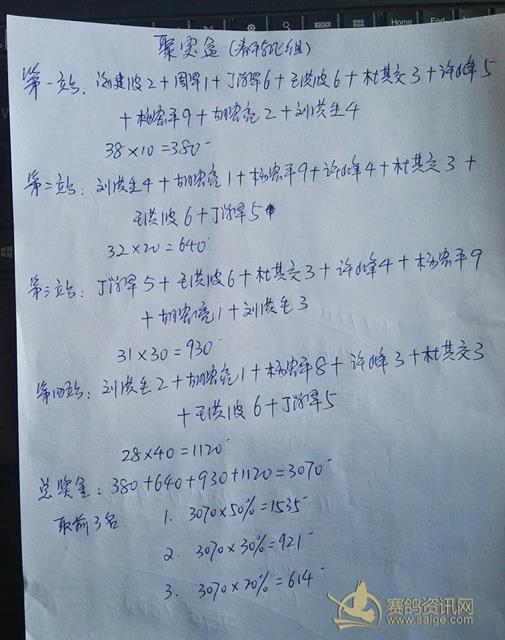 聚宝盆(春特比组)
第一站: 汤建波2+周军1+丁海军6+王洪波6+杜其交3+许峰5
+杨宏平9+胡宏亮2+刘洪生4
38×10=380
第二站: 刘洪生4+胡宏亮1+杨宏平9+许峰4+杜其交3+
王洪波6+丁海军5
32×20=640
第三站: 丁海军5+王洪波6+杜其交3+许峰4+杨宏平9
+胡宏亮1+刘洪生3
31×30=930
第四站: 刘洪生2+胡宏亮1+杨宏平8+许峰3+杜其交3
+王洪波6+丁海军5
28×40=1120
总奖金: 380+640+930+1120=3070
取前3名 1. 3070×50%=1535
2. 3070×30%=921
3. 3070×20%=614
赛鸽资讯网
www.saige.com